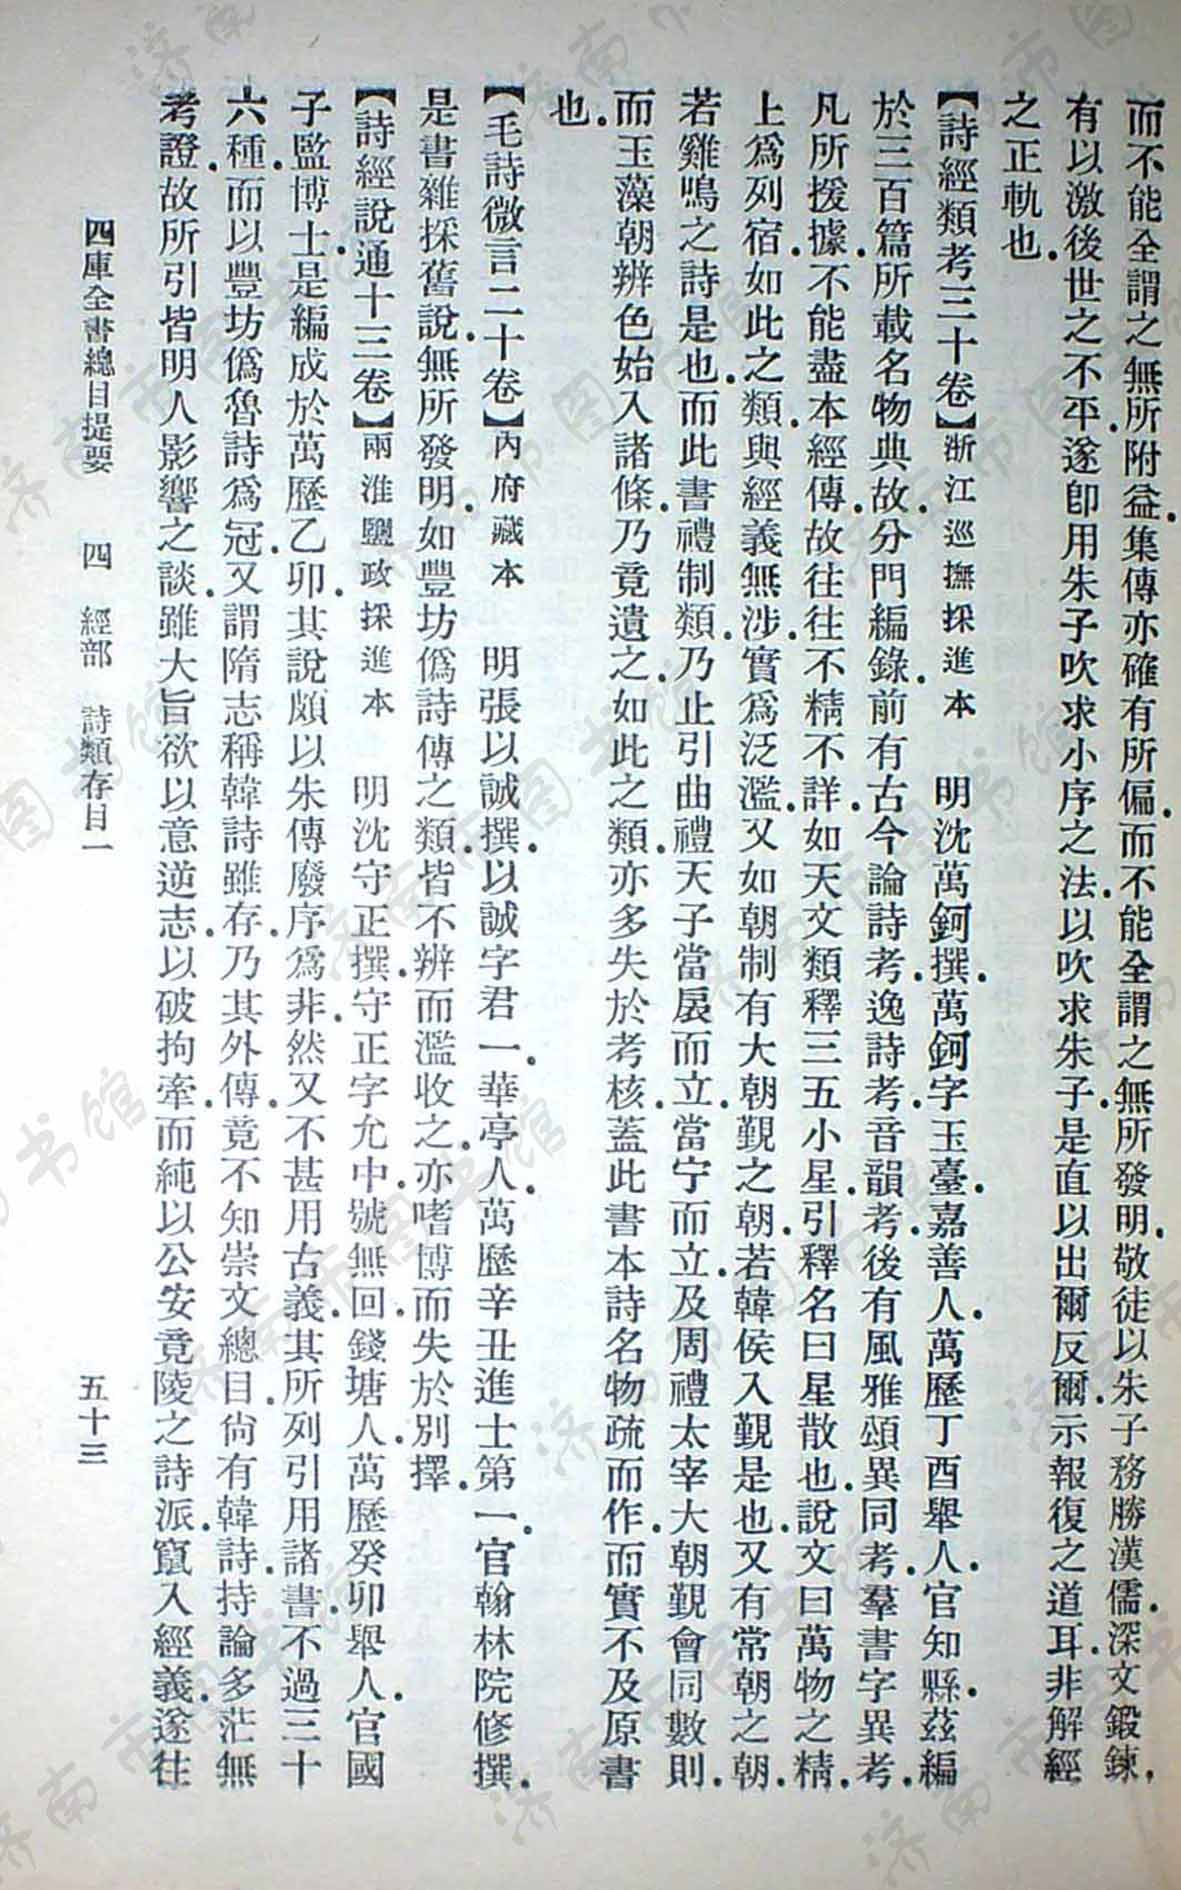 而不能全謂之無所附益．集傳亦確有所偏．而不能全謂之無所發明．敬徒以朱子務勝漢儒．深文鍛鍊．
有以激後世之不平．遂卽用朱子吹求小序之法．以吹求朱子．是直以出爾反爾．示報復之道耳．非解經
之正軌也．
【詩經類考三十卷】浙江巡撫採進本　明沈萬鈳撰．萬鈳字玉臺．嘉善人．萬歷丁酉舉人．官知縣．茲編
於三百篇所載名物典故．分門編錄．前有古今論詩考．逸詩考．音韻考．後有風雅頌異同考．羣書字異考．
凡所援據．不能盡本經傳．故往往不精不詳．如天文類釋三五小星．引釋名曰星散也．說文曰萬物之精．
上爲列宿．如此之類．與經義無涉．實爲泛濫．又如朝制有大朝覲之朝．若韓侯入覲是也．又有常朝之朝．
若雞鳴之詩是也．而此書禮制類．乃止引曲禮．天子當扆而立．當宁而立．及周禮太宰大朝覲會同數則．
而玉藻朝辨色始入諸條．乃竟遺之．如此之類．亦多失於考核．蓋此書本詩名物疏而作．而實不及原書
也．
【毛詩微言二十卷】內府藏本　明張以誠撰．以誠字君一．華亭人．萬歷辛丑進士第一．官翰林院修撰．
是書雜採舊說．無所發明．如豐坊僞詩傳之類．皆不辨而濫收之．亦嗜博而失於別擇．
【詩經說通十三卷】兩淮鹽政採進本　明沈守正撰．守正字允中．號無回．錢塘人．萬歷癸卯舉人．官國
子監博士．是編成於萬歷乙卯．其說頗以朱傳廢序爲非．然又不甚用古義．其所列引用諸書．不過三十
六種．而以豐坊僞魯詩爲冠．又謂隋志稱韓詩雖存．乃其外傳．竟不知崇文總目．尙有韓詩．持論多茫無
考證．故所引皆明人影響之談．雖大旨欲以意逆志．以破拘牽．而純以公安竟陵之詩派．竄入經義．遂往
四庫全書總目提要　四　經部　詩類存目一　五十三